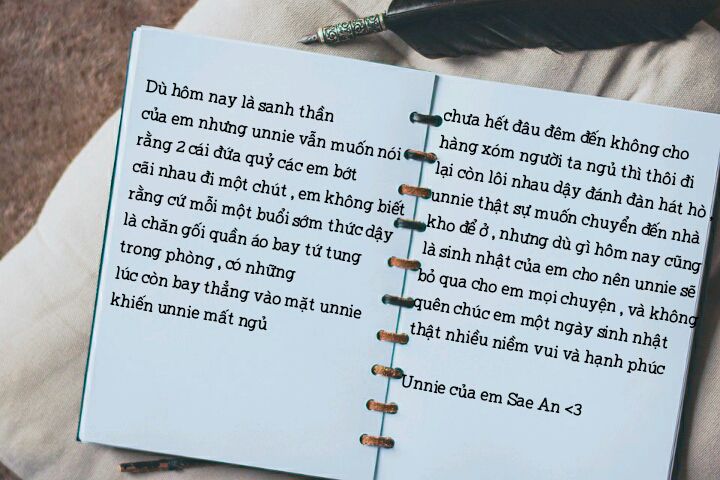 Dù hôm nay là sanh thần
của em nhưng unnie vẫn muốn nói
rằng 2 cái đứa quỷ các em bớt
cãi nhau đi một chút , em không biết
rằng cứ mỗi một buổi sớm thức dậy
là chăn gối quần áo bay tứ tung
trong phòng , có những
lúc còn bay thẳng vào mặt unnie
khiến unnie mất ngủ
chưa hết đâu đêm đến không cho
hàng xóm người ta ngủ thì thôi đi
lại còn lôi nhau dậy đánh đàn hát hò ,
unnie thật sự muốn chuyển đến nhà
kho để ở , nhưng dù gì hôm nay cũng
là sinh nhật của em cho nên unnie sẽ
bỏ qua cho em mọi chuyện , và không
quên chúc em một ngày sinh nhật
thật nhiều niềm vui và hạnh phúc
Unnie của em Sae An <3